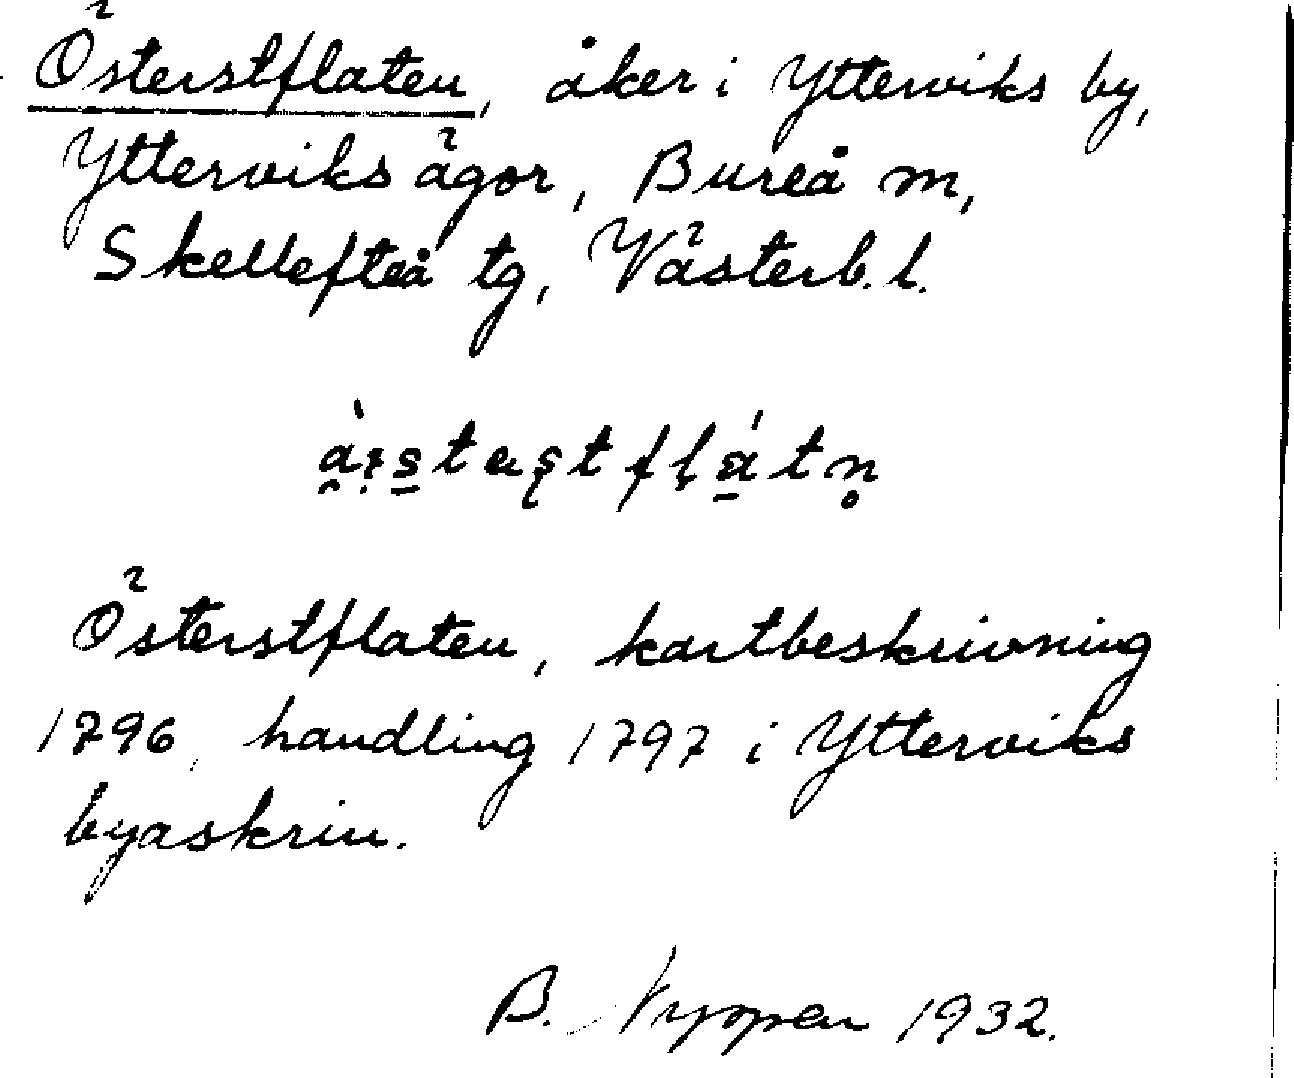 Österstflaten, åker i Ytterviks by,
Ytterviks ägor, Bureå m,
Skellefteå tg, Västerb. l.
Österstflaten, kartbeskrivning
1796, handling 1797 i Ytterviks
byaskrin.
B. 1932.